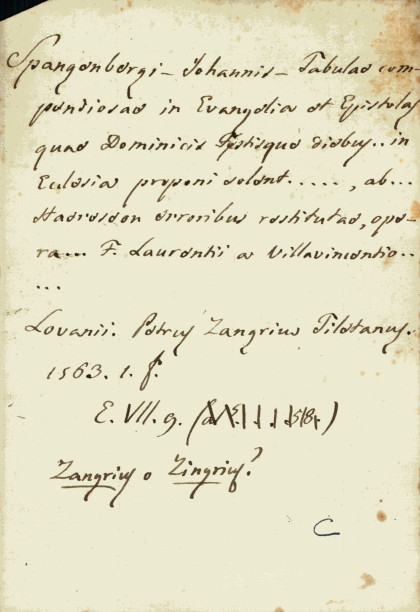 Spangenbergi - Johannis - Tabulae com-
pendiosae in Evangelia et Epistolas
quae Dominicis Festisque diebus.. in
Eclesia proponi solent....., ab...
Haereseon erroribus restitutae, ope-
ra... F. Laurentii a Villavincentio..
...
Lovanii. Petrus Zangrius Tiletanus.
1563. 1. f.
E. VII. 9.
Zangrius o Zingrius?
C